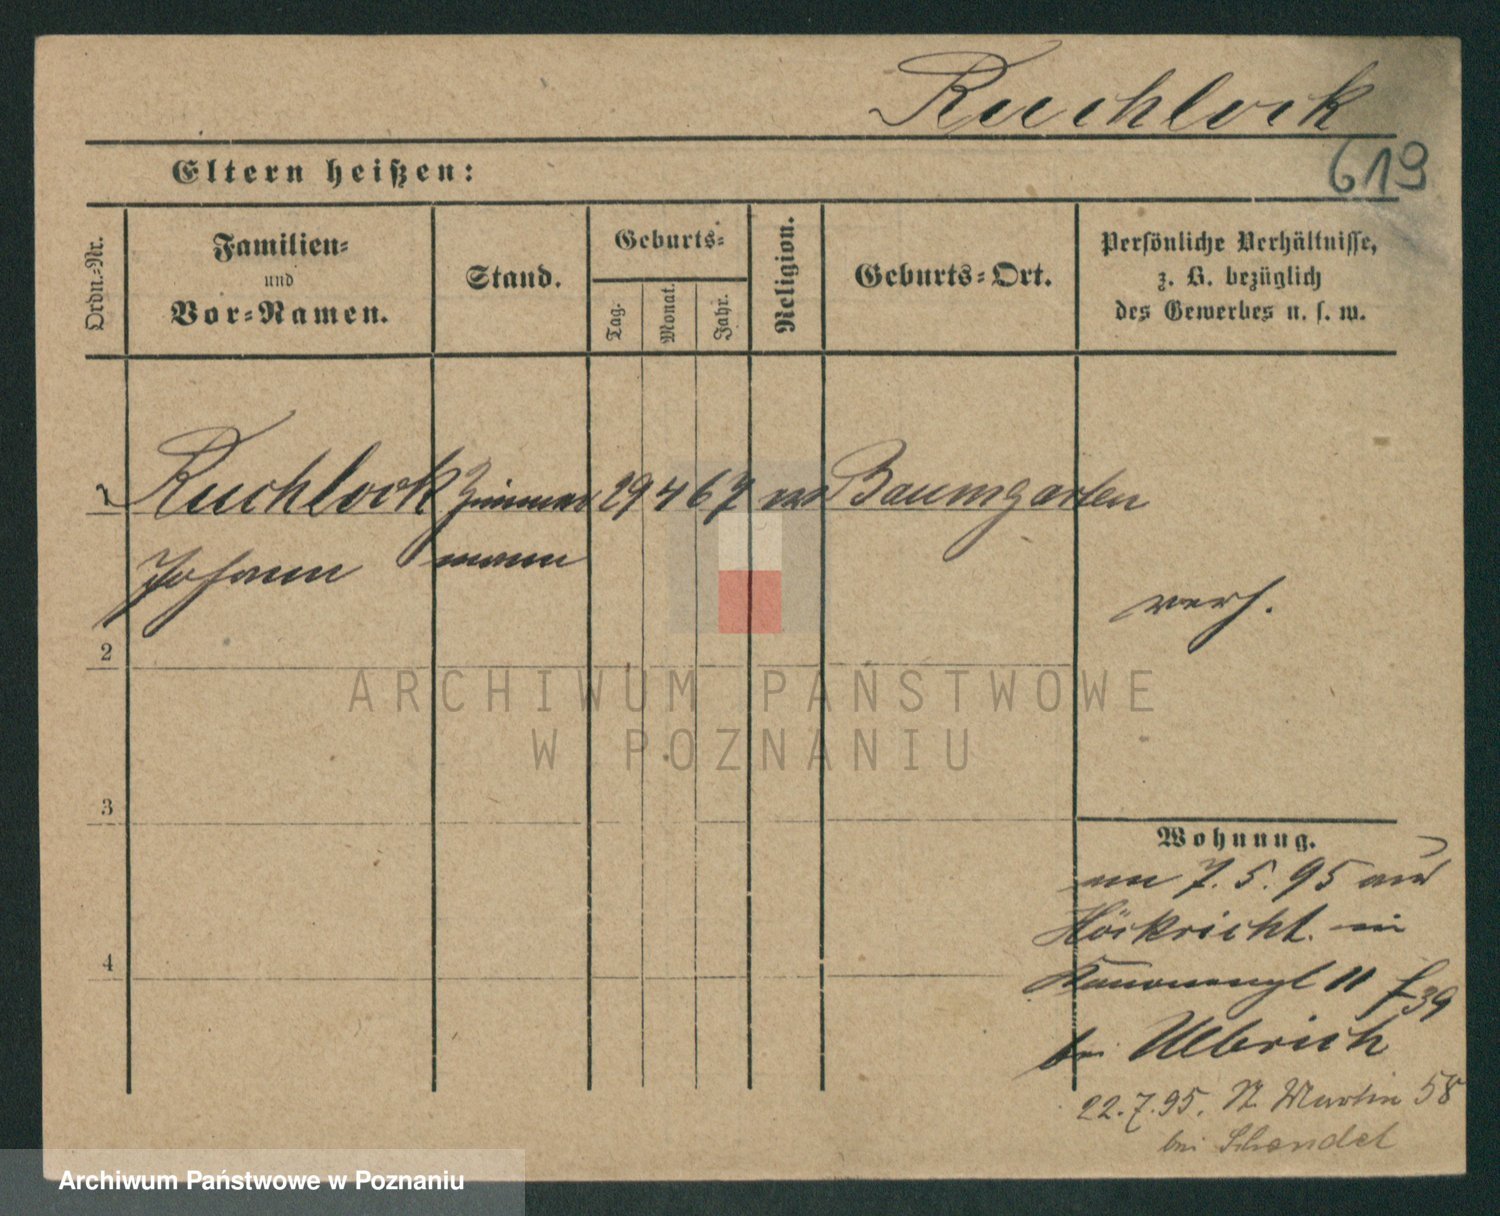 Ruchlock
619
Eltern heißen:
Ordn.-Nr.
Familien-
und
Vor-Namen.
Stand.
Geburts-
Tag.
Monat.
Jahr.
Religion.
Geburts-Ort.
Persönliche Verhältnisse,
z. B. bezüglich
des Gewerbes u. s. w.
1 Ruchlock Zimmer 29 4 67 Baumgarten
Johann mann
verh.
2
3
4
Wohnung.
am 7. 5. 95 aus
Höckricht in
Kanonenpl 11 f 39
bei Ulbrich
22. 7. 95. St. Martin 58
bei Schandel
ARCHIWUM PAŃSTWOWE
W POZNANIU
Archiwum Państwowe w Poznaniu